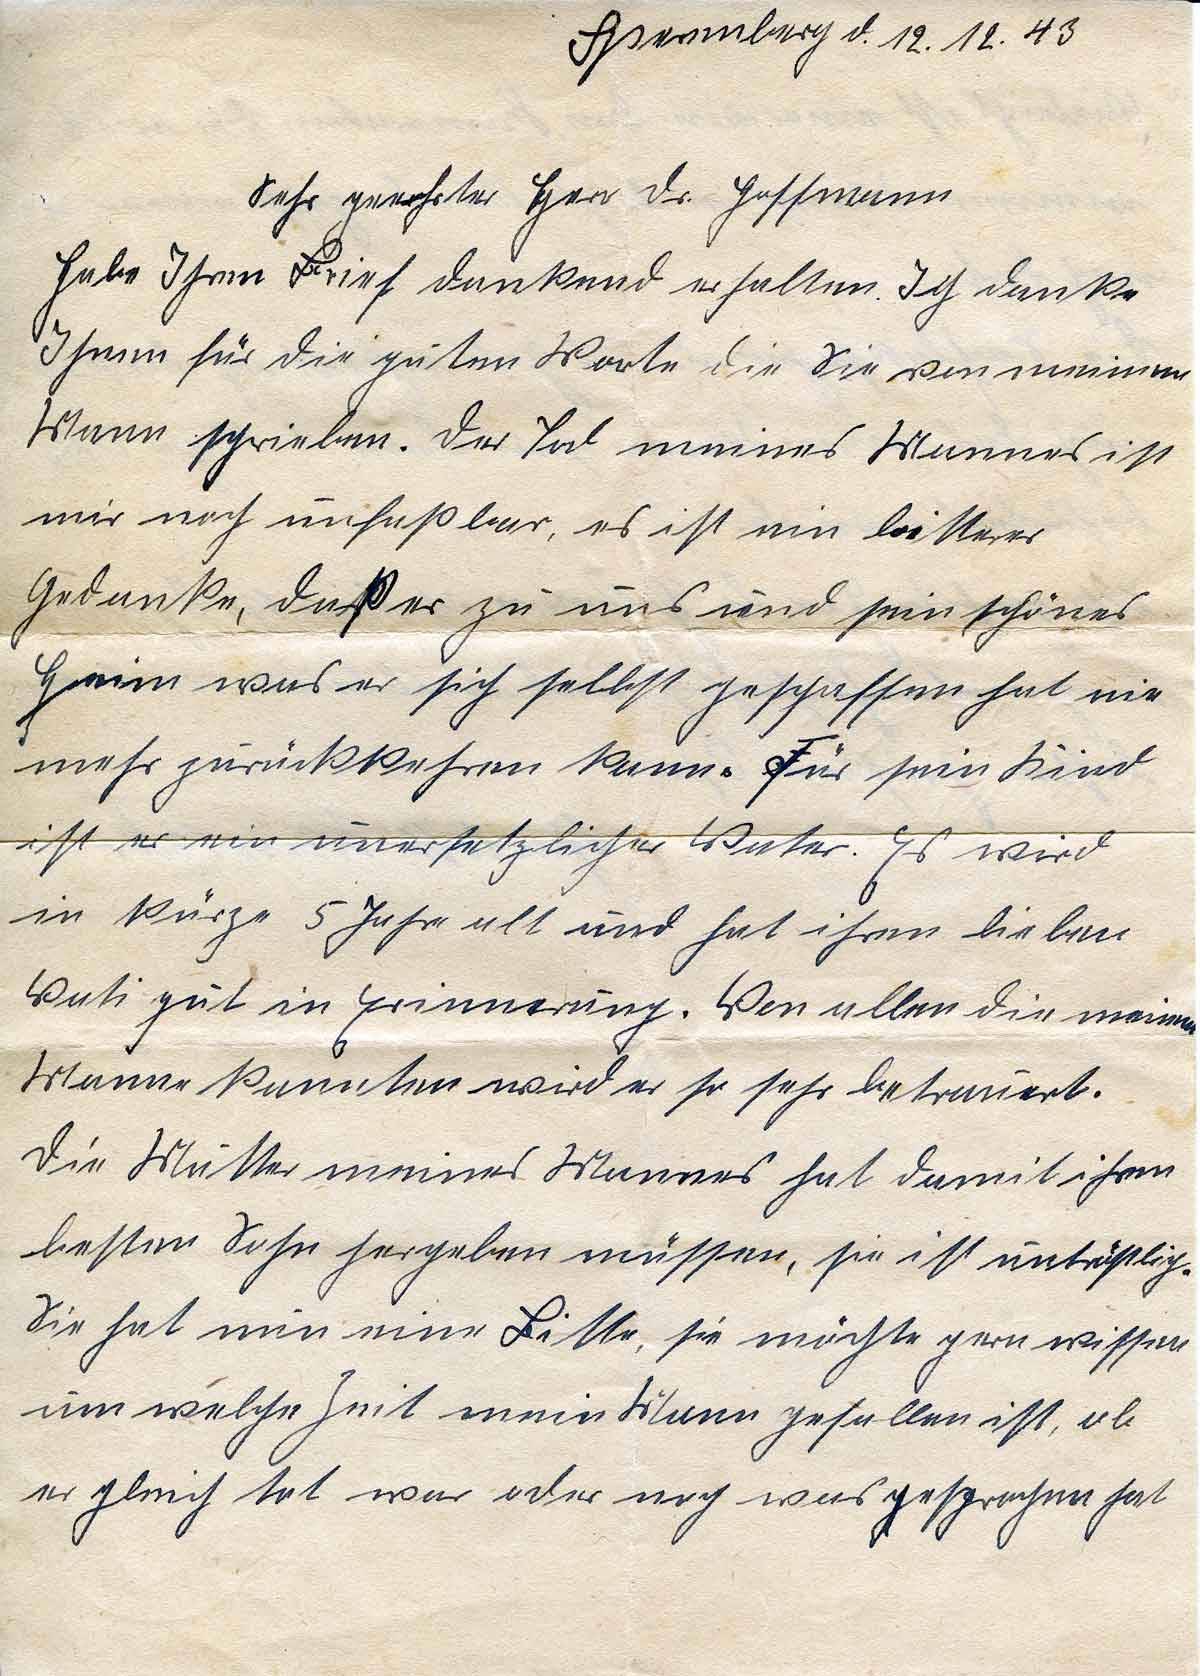 Spremberg d. 12. 12. 43
Sehr geehrter Herr Dr. Hoffmann
Habe Ihren Brief dankend erhalten. Ich danke
Ihnen für die guten Worte die Sie von meinem
Mann schrieben. Der Tod meines Mannes ist
mir noch unfaßbar, es ist ein bitterer
Gedanke, daß er zu uns und sein schönes
Heim was er sich selbst geschaffen hat nie
mehr zurückkehren kann. Für sein Kind
ist er ein unersetzlicher Vater. Es wird
in Kürze 5 Jahre alt und hat ihren lieben
Vati gut in Erinnerung. Von allen die meinen
Manne kannten wird er so sehr betrauert.
Die Mutter meines Mannes hat damit ihren
besten Sohn hergeben müssen, sie ist untröstlich.
Sie hat nun eine Bitte, sie möchte gern wissen
um welche Zeit mein Mann gefallen ist, ob
er gleich tot war oder noch was gesprochen hat